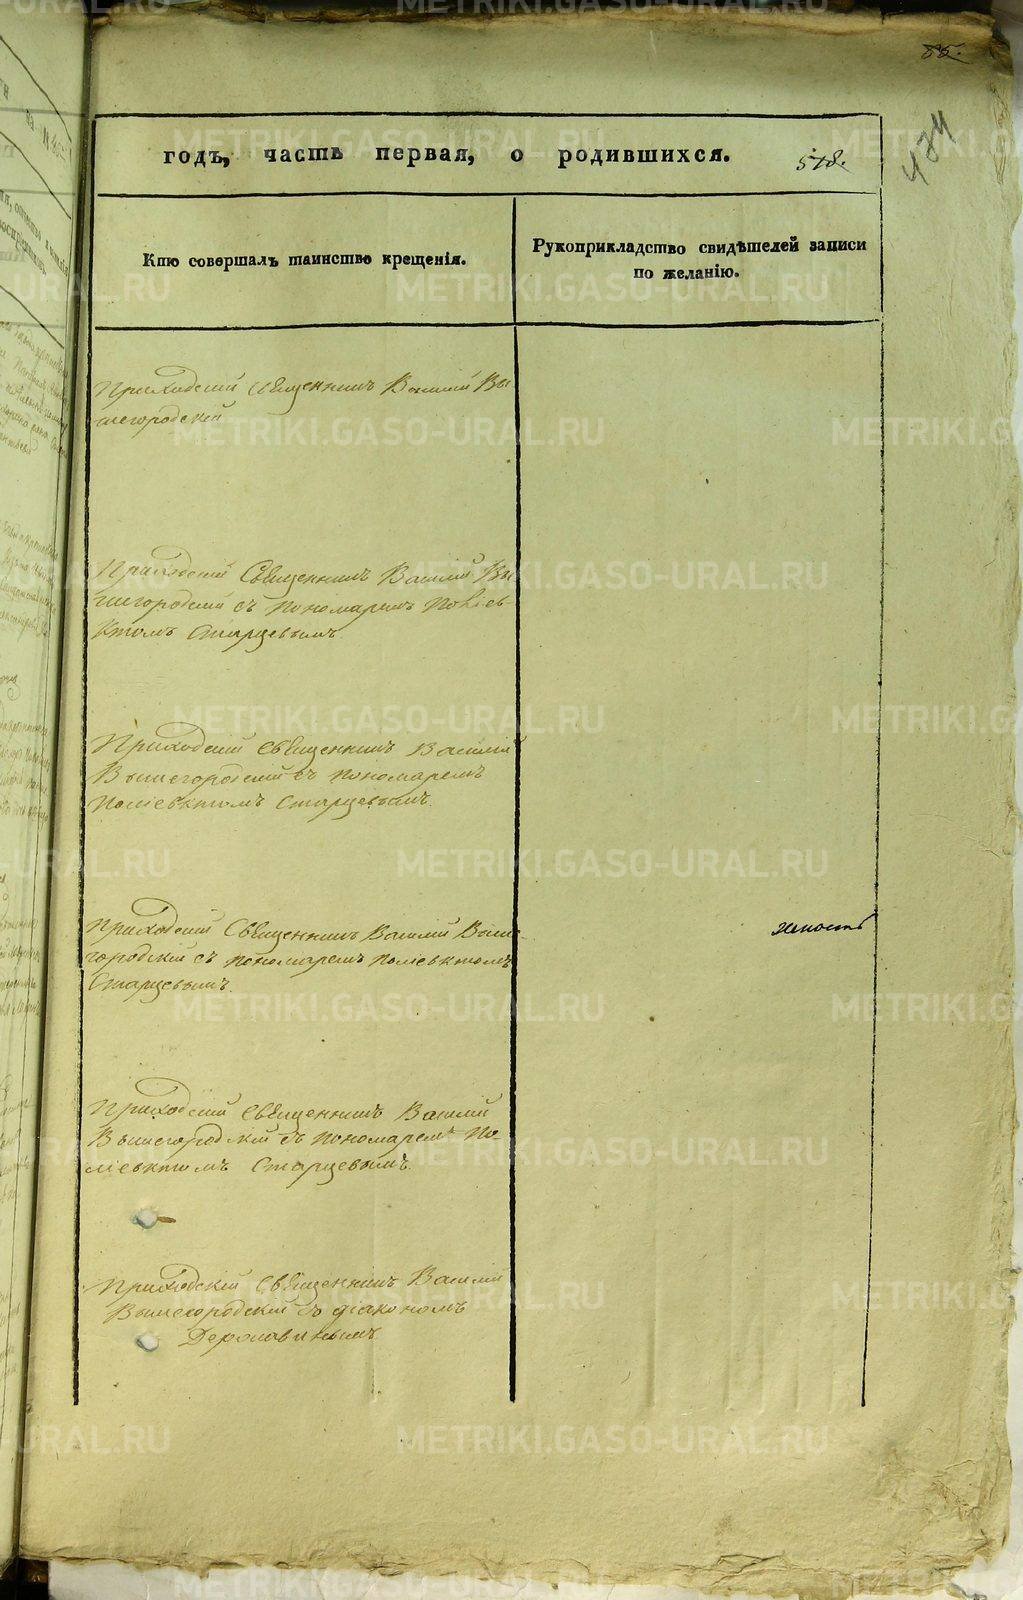 85.
474
годъ, часть первая, о родившихся.
518.
Кто совершалъ таинство крещенія.
Рукоприкладство свидѣтелей записи
по желанію.
Приходскій Священникъ Василій Вы
шегородскій
Приходскій Священникъ Василій Вы
шегородскій съ пономаремъ Поліев-
ктомъ Старцевымъ.
Приходскій Священникъ Василій
Вышегородскій съ пономаремъ
Поліевктомъ Старцевымъ.
Приходскій Священникъ Василій Выше-
городскій съ пономаремъ Поліевктомъ
Старцевымъ.
Приходскій Священникъ Василій
Вышегородскій съ пономаремъ По-
ліевктомъ Старцевымъ.
Приходскій Священникъ Василій
Вышегородскій съ діакономъ
METRIKI.GASO-URAL.RU